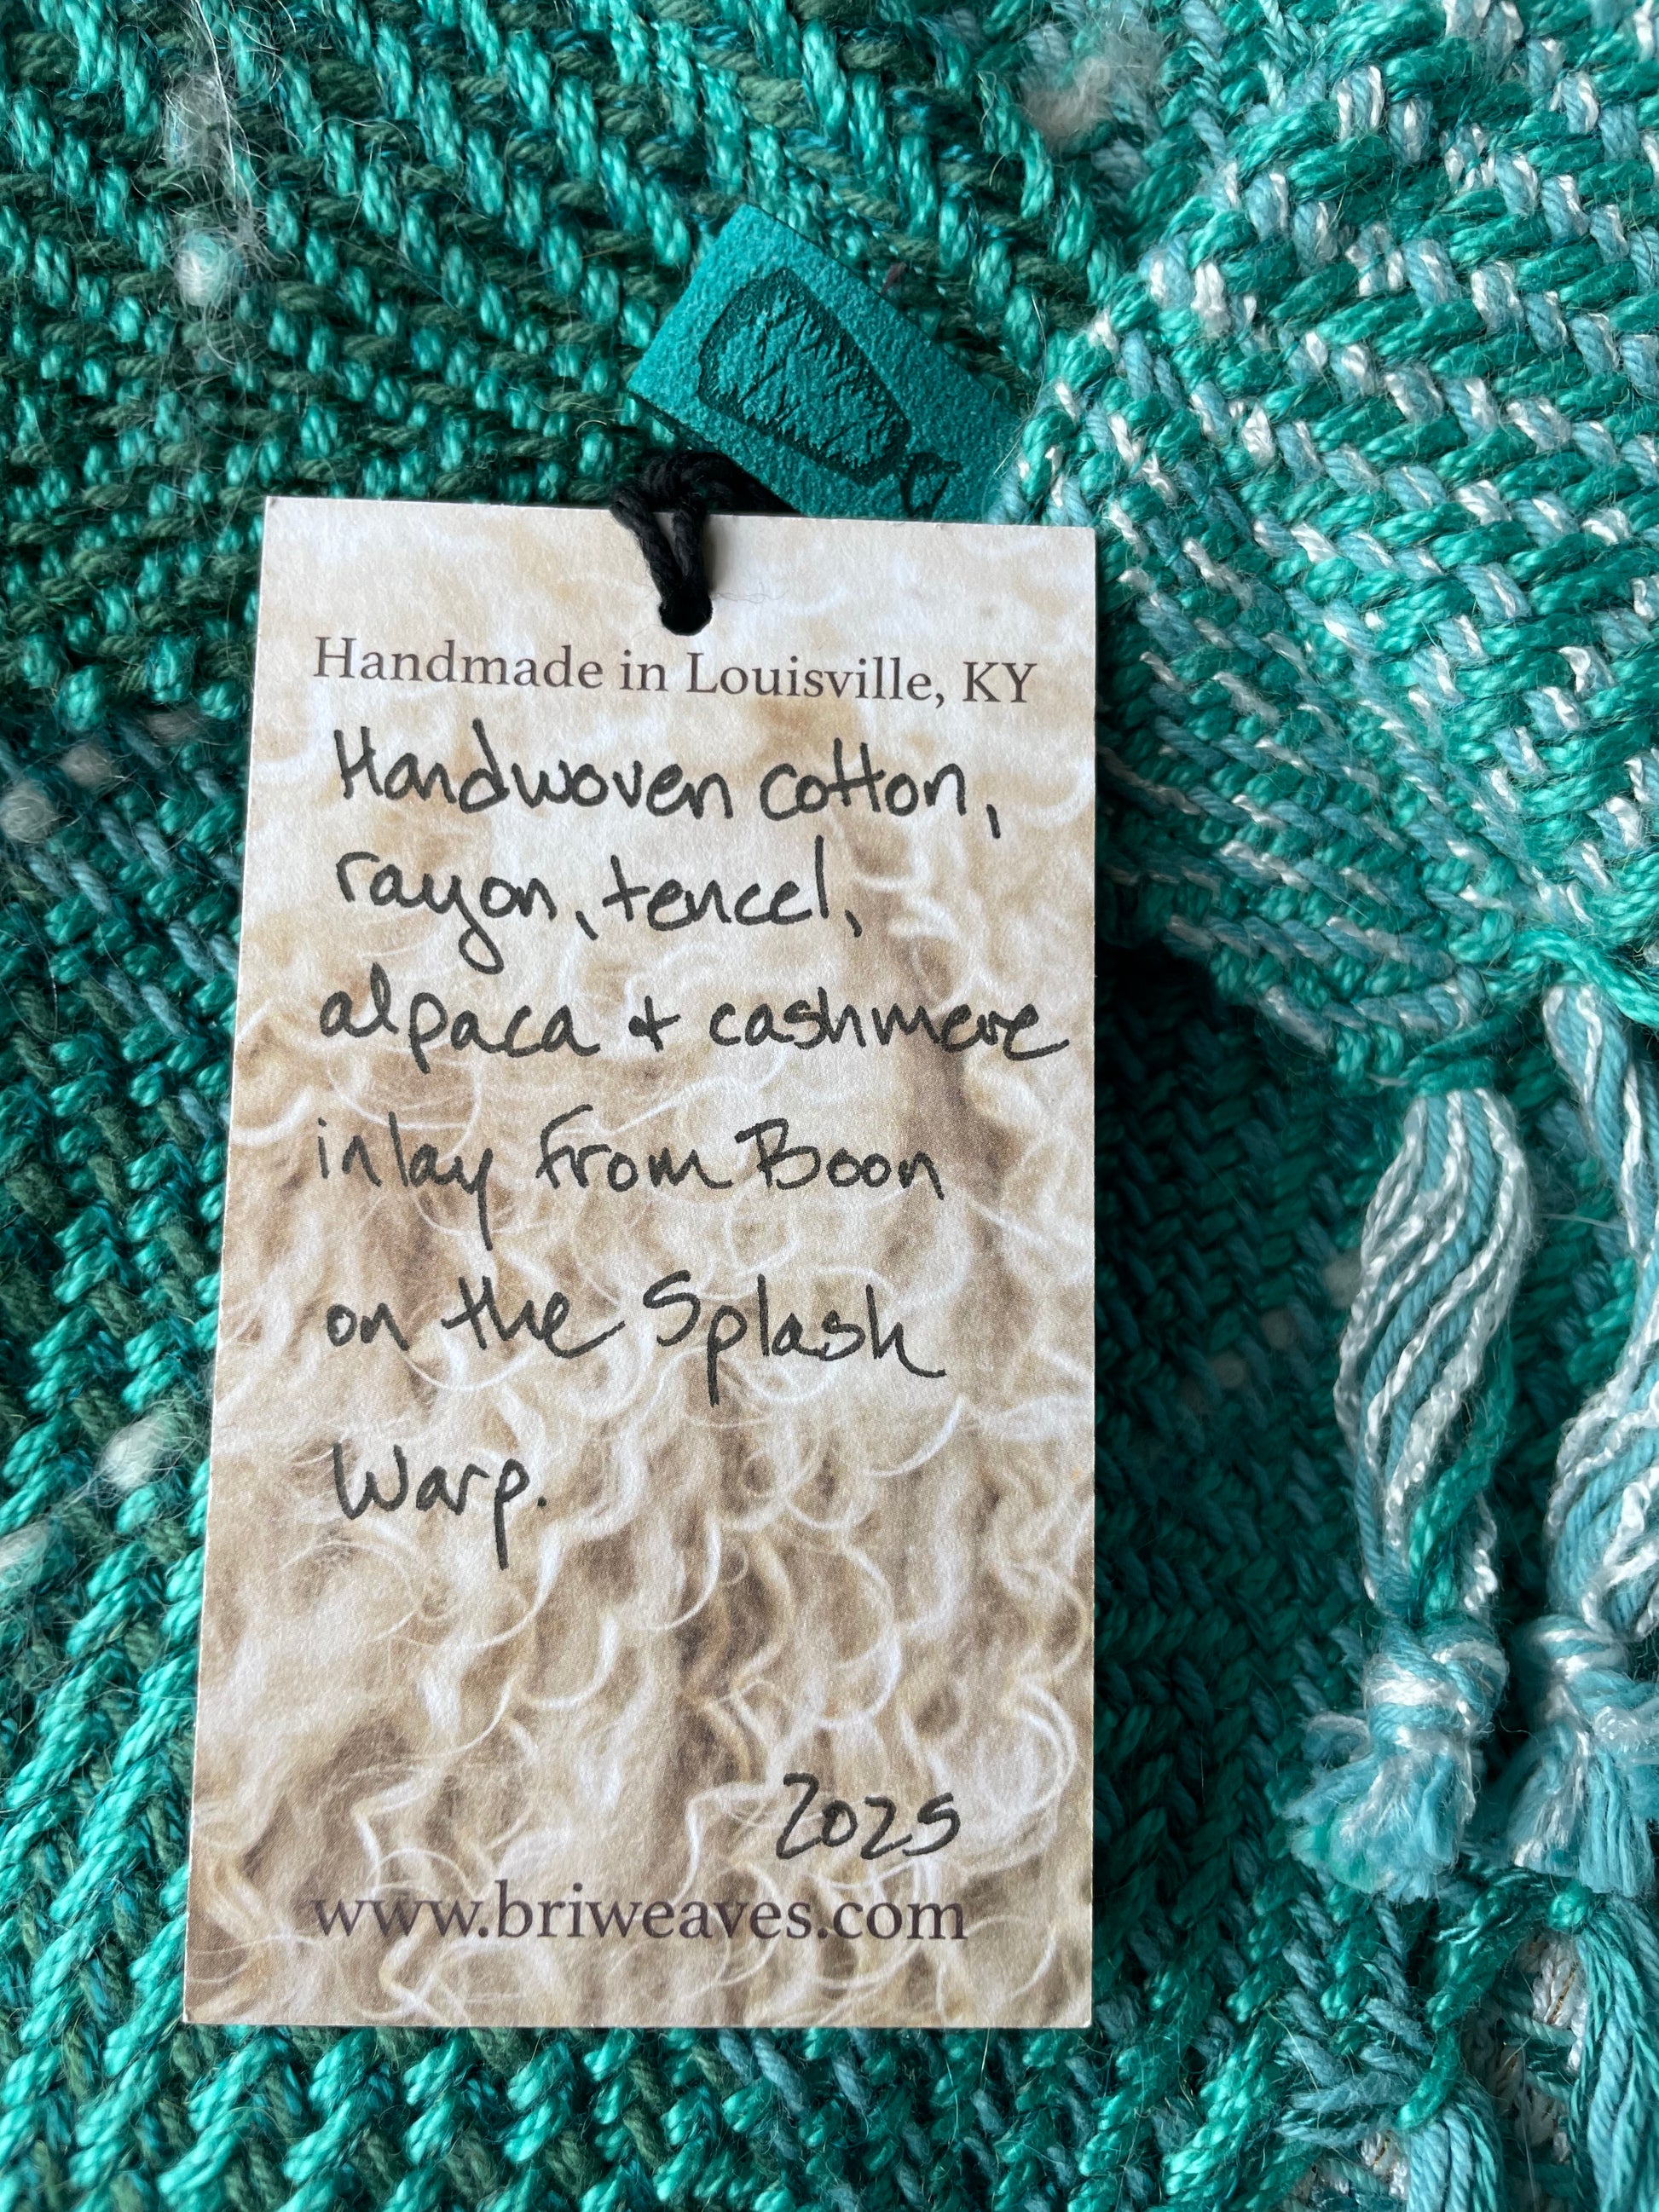 Handmade in Louisville, KY
Handwoven cotton,
rayon, tencel,
alpaca + cashmere
inlay from Boon
on the Splash
Warp.
2025
www.briweaves.com